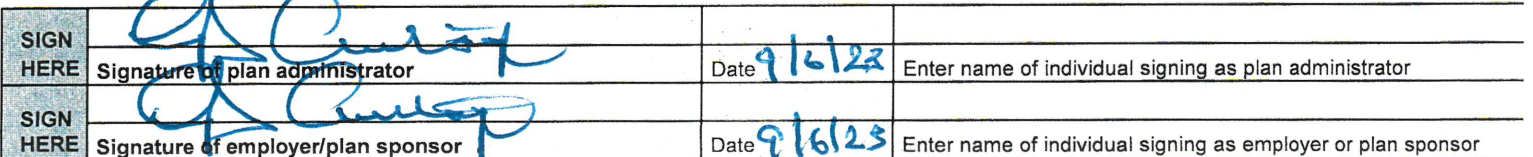 SIGN
HERE Signature of plan administrator Date 9/6/23 Enter name of individual signing as plan administrator
SIGN
HERE Signature of employer/plan sponsor Date 9/6/23 Enter name of individual signing as employer or plan sponsor